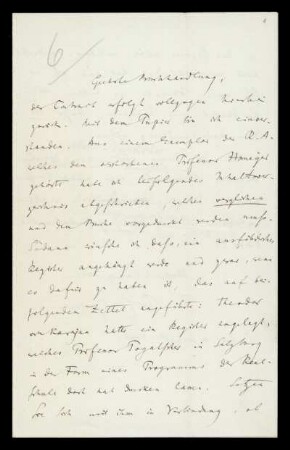 6
Geehrte Buchhandlung,
der Contract erfolgt vollzogen hierbei
zurück. Mit dem Papier bin ich einver-
standen. Aus einem Exemplar der R.A.
welches dem verstorbenen Professor Homeyer
gehörte habe ich beifolgendes Inhaltsver-
zeichniss abgeschrieben, welches verglichen
und dem Buche vorgedruckt werden muss.
Sodann wünsche ich dass, ein ausführliches
Register angehängt werde und zwar, was
es dafür zu haben ist, das auf bei-
folgendem Zettel angeführte: Theodor
von Karajan hatte ein Register angelegt,
welches Professor in Salzburg
in der Form eines Programms der Real-
schule dort hat drucken lassen. Setzen
Sie sich mit ihm in Verbindung, ob